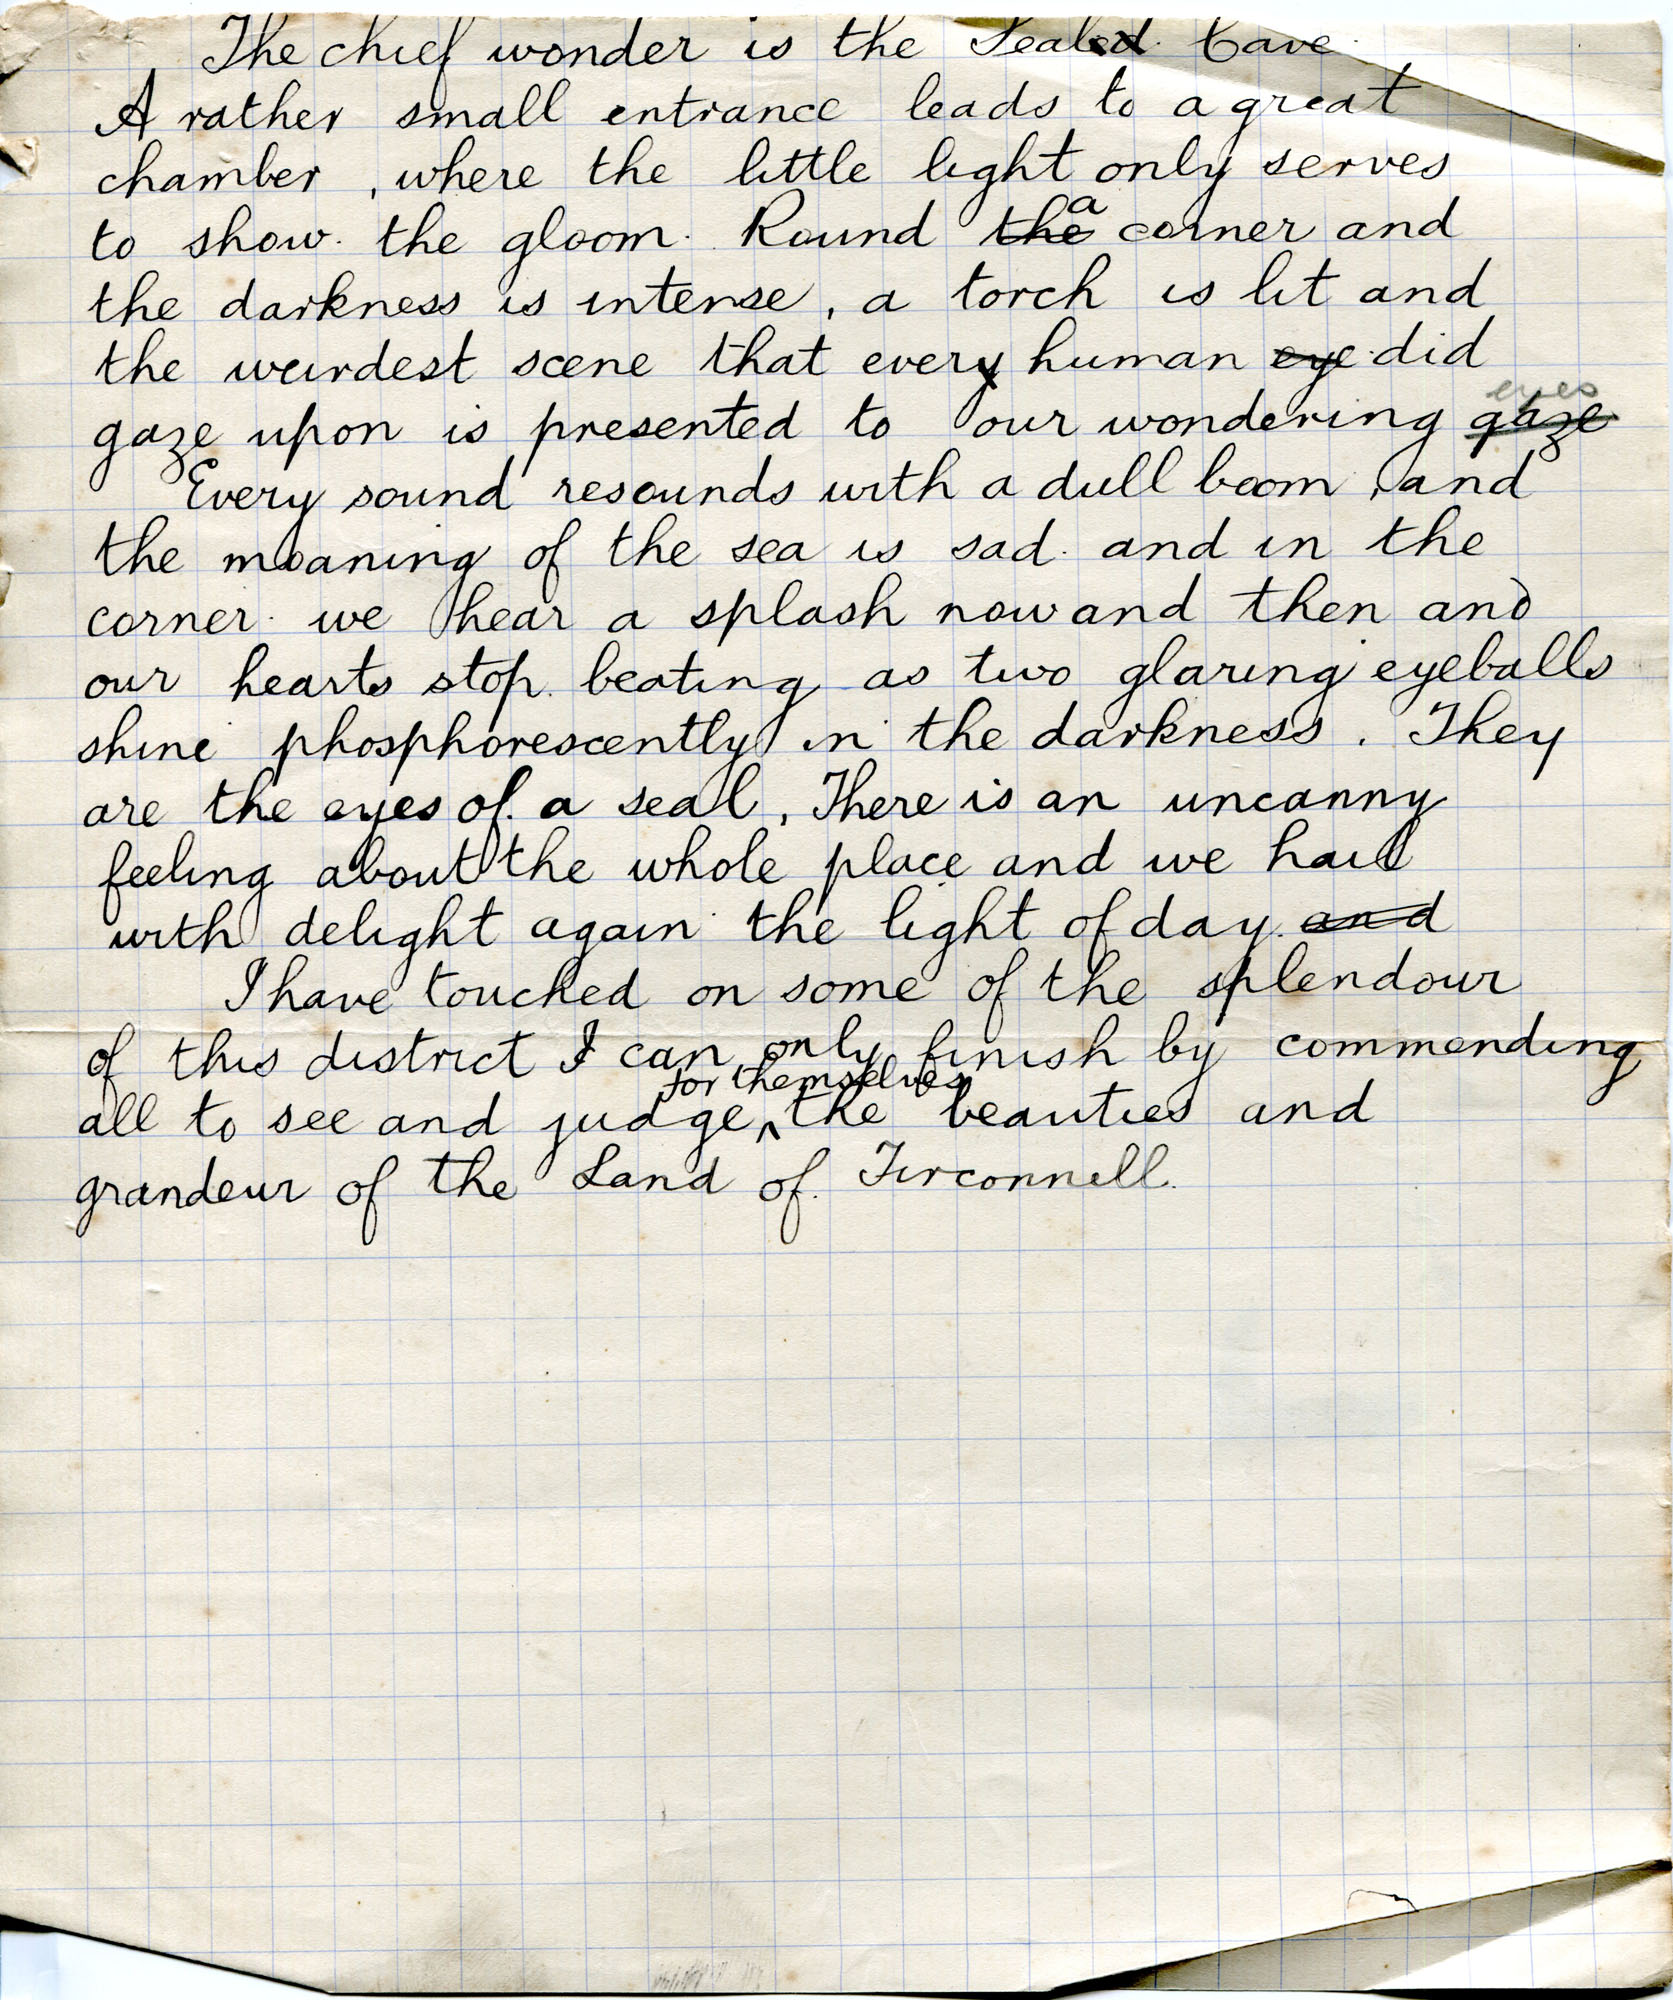 The chief wonder is the Seal Cave.
A rather small entrance leads to a great
chamber, where the little light only serves
to show the gloom. Round a corner and
the darkness is intense, a torch is lit and
the weirdest scene that ever human did
gaze upon is presented to our wondering eyes
Every sound resounds with a dull boom, and
the moaning of the sea is sad. and in the
corner we hear a splash now and then and
our hearts stop beating as two glaring eyeballs
shine phosphorescently in the darkness. They
are the eyes of a seal. There is an uncanny
feeling about the whole place and we hail
with delight again the light of day.
I have touched on some of the splendour
of this district I can only finish by commending
all to see and judge for themselves the beauties and
grandeur of the Land of Tirconnell.